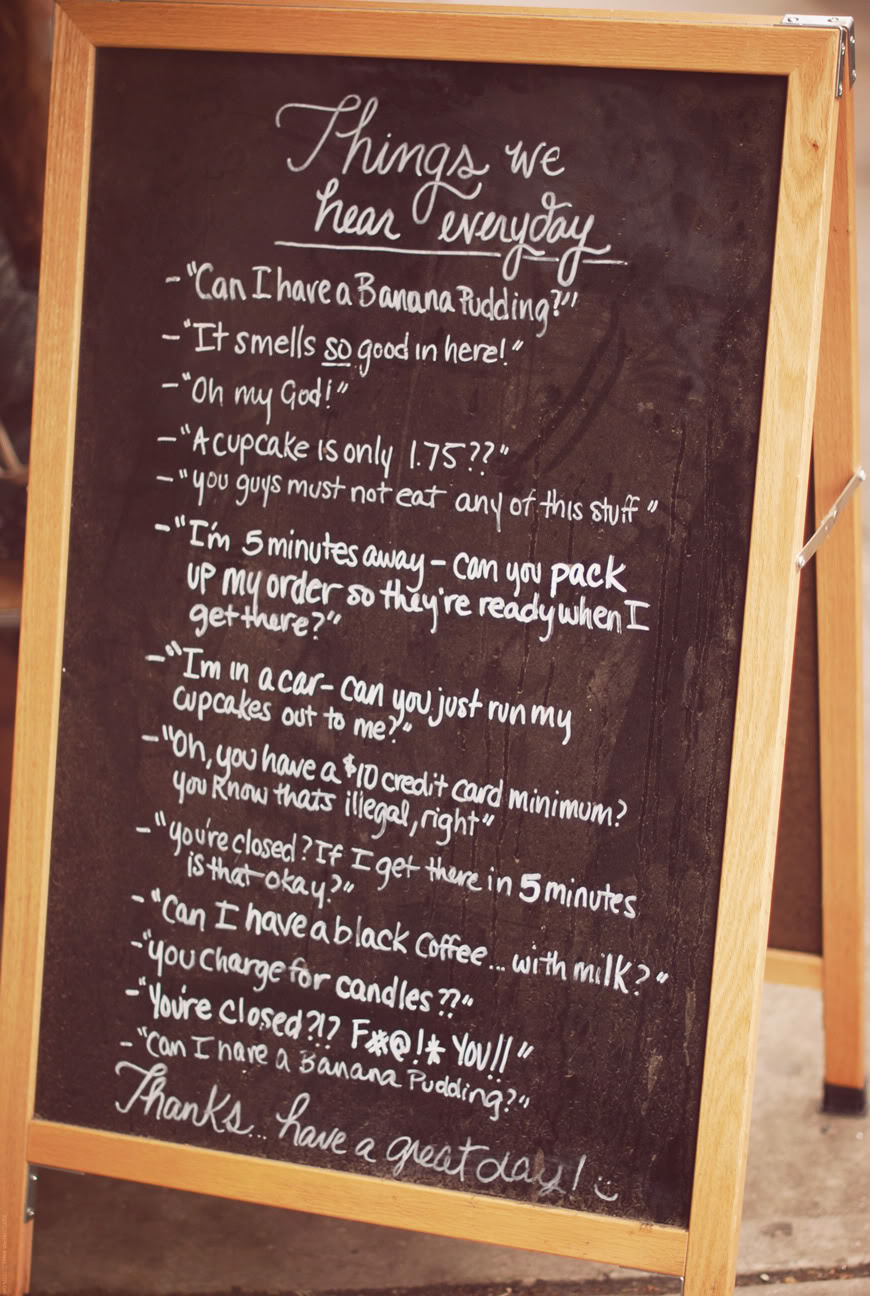 Things we
hear everyday
- "Can I have a Banana Pudding?"
- "It smells so good in here!"
- "Oh my God!"
- "A cupcake is only 1.75??"
- "you guys must not eat any of this stuff"
- "I'm 5 minutes away - can you pack
up my order so they're ready when I
get there?"
- "Im in a car - can you just run my
cupcakes out to me?"
- "Oh, you have a $10 credit card minimum?
you know thats illegal, right"
- "you're closed? If I get there in 5 minutes
is that okay?"
- "Can I have a black coffee... with milk?"
- "you charge for candles??"
- "You're closed?!? F*@!* You!!"
- "Can I have a Banana Pudding?"
Thanks... have a great day!